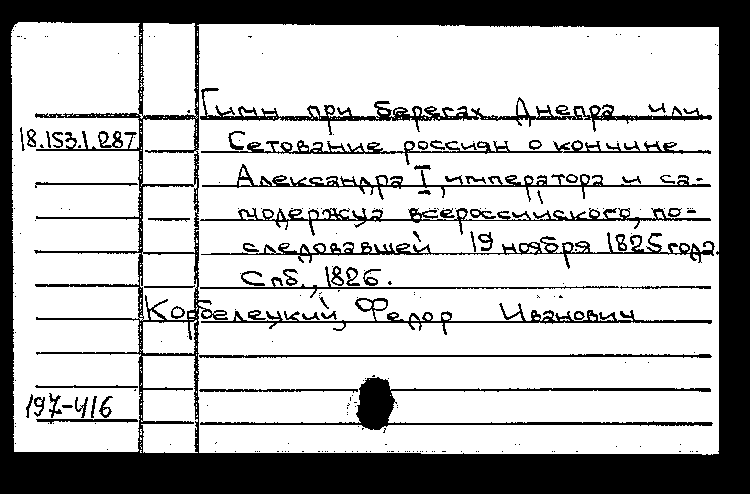 Гимн при берегах Днепра, или
18.153.1.287 Сетование россиян о кончине
Александра I, императора и са-
модержца всероссийского, по-
следовавшей 19 ноября 1825 года.
Спб., 1826.
Корбелецкий, Федор Иванович
197-416